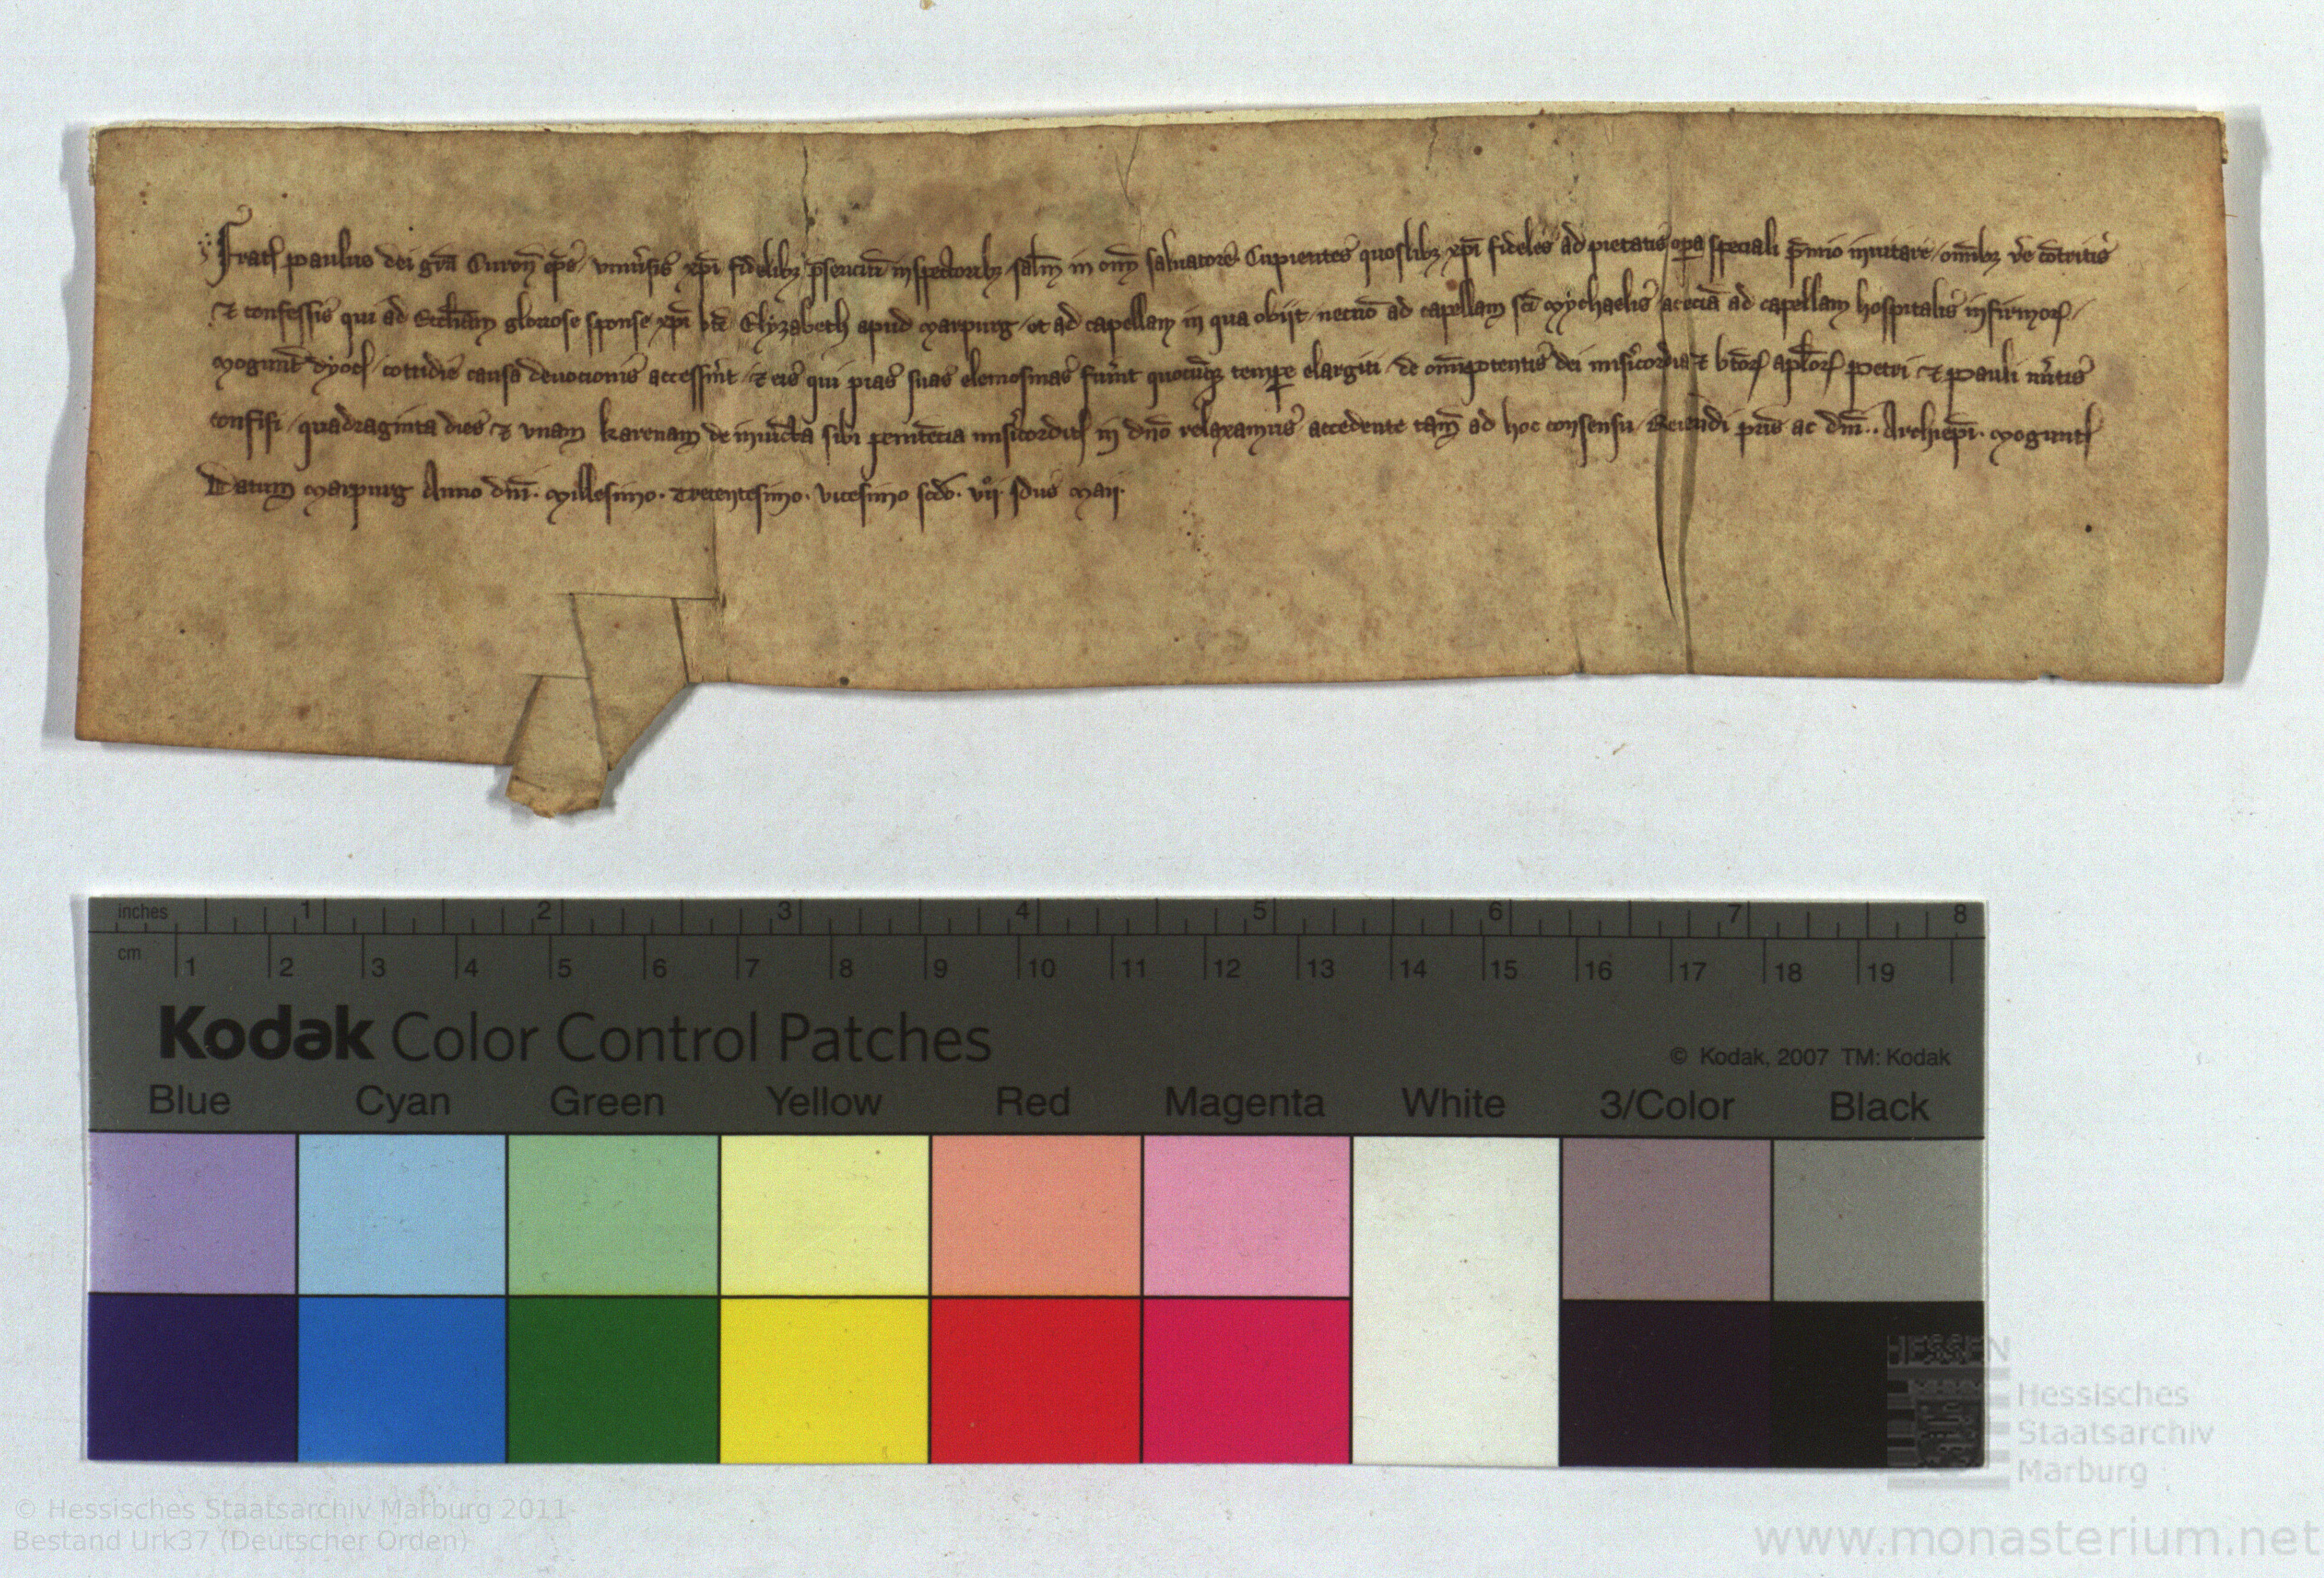 Frat͛ paulus dei gr̄a Curon̄ ep̄s / vniu͛sis xp̄i fidelibꝫ p̄senciū inspectoribꝫ / sal̄m in om̄ saluatore. Cupientes quoslibꝫ xp̄i fideles ad pietatis oꝑa speciali p̄mio inuitare / om̄ibꝫ v͛e cōtritis
⁊ confessis qui ad Eccl̄iam gloriose sponse xp̄i bt̄e Elyzabeth apud Marpurg / et ad capellam in qua obijt / necnō ad capellam sc̄i Mychaelis / ac eciā ad capellam hospitalis infirmoꝝ /
Mogunt̄ dyoc̄ / cottidie causa deuocionis access͛int / ⁊ eis qui pias suas elemosinas fu͛int quocūqꝫ tempe elargiti / de om̄ipotentis dei mis͛icordia ⁊ bt̄oꝝ apl̄oꝝ Petri ⁊ Pauli m͛itis
confisi / quadraginta dies ⁊ vnam karenam de iniūcta sibi penitēcia mis͛icordit͛ in dn̄o relaxamus accedente tam̄ ad hoc consensu Reu͛endi p̄ris ac dn̄i .. Archiep̄i. Mogunt͛
Datum Marpurg Anno dn̄i. Millesimo. Trecentesimo. vicesimo scd̄o. vij. Idus Maij.
inches 1 2 3 4 5 6 7 8
cm 1 2 3 4 5 6 7 8 9 10 11 12 13 14 15 16 17 18 19
Kodak Color Control Patches
© Kodak, 2007 TM: Kodak
Blue Cyan Green Yellow Red Magenta White 3/Color Black
HESSEN
Hessisches
Staatsarchiv
Marburg
© Hessisches Staatsarchiv Marburg 2011
Bestand Urk37 (Deutscher Orden)
www.monasterium.net